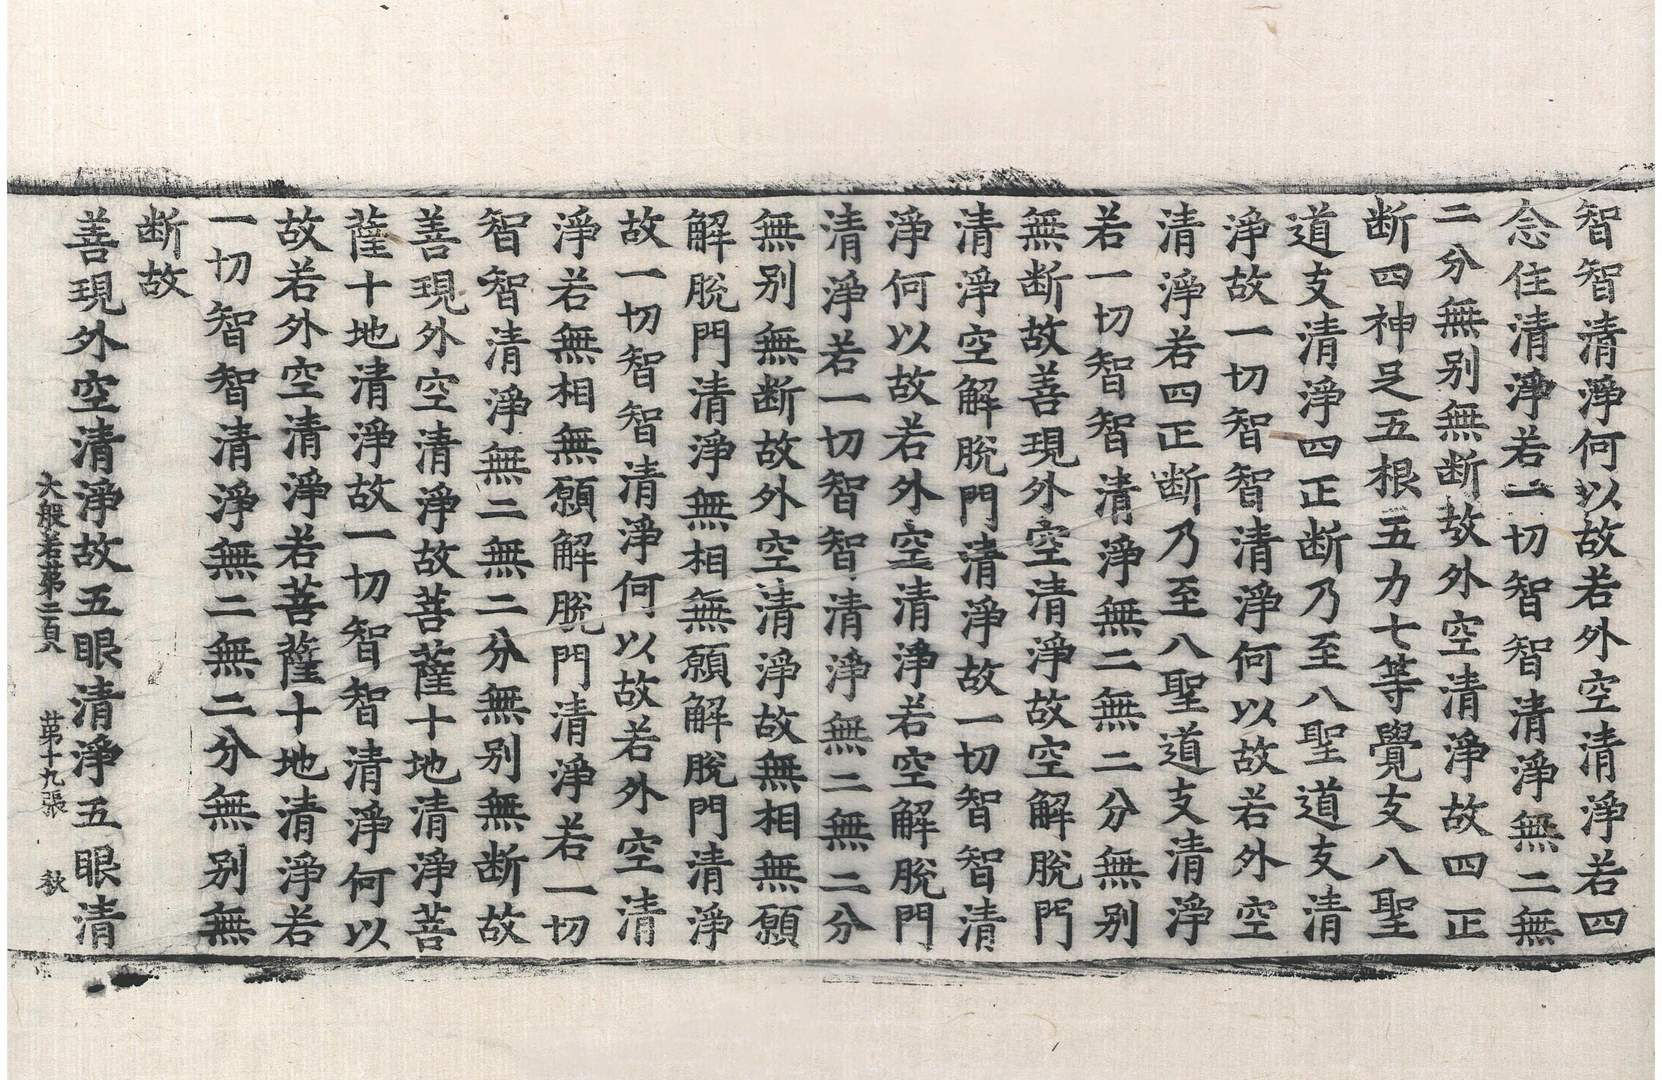 智智清淨何以故若外空清淨若四
念住清淨若一切智智清淨無二無
二分無別無斷故外空清淨故四正
断四神足五根五力七等覺支八聖
道支清淨四正断乃至八聖道支清
淨故一切智智清淨何以故若外空
清淨若四正断乃至八聖道支清淨
若一切智智清淨無二無二分無別
無断故善現外空清淨故空解脫門
清淨空解脫門清淨故一切智智清
淨何以故若外空清淨若空解脫門
清淨若一切智智清淨無二無二分
無別無断故外空清淨故無相無願
解脫門清淨無相無願解脫門清淨
故一切智智清淨何以故若外空清
淨若無相無願解脫門清淨若一切
智智清淨無二無二分無別無断故
善現外空清淨故菩薩十地清淨菩
薩十地清淨故一切智智清淨何以
故若外空清淨若菩薩十地清淨若
一切智智清淨無二無二分無別無
断故
善現外空清淨故五眼清淨五眼清
大般若第二百 第十九張 秋